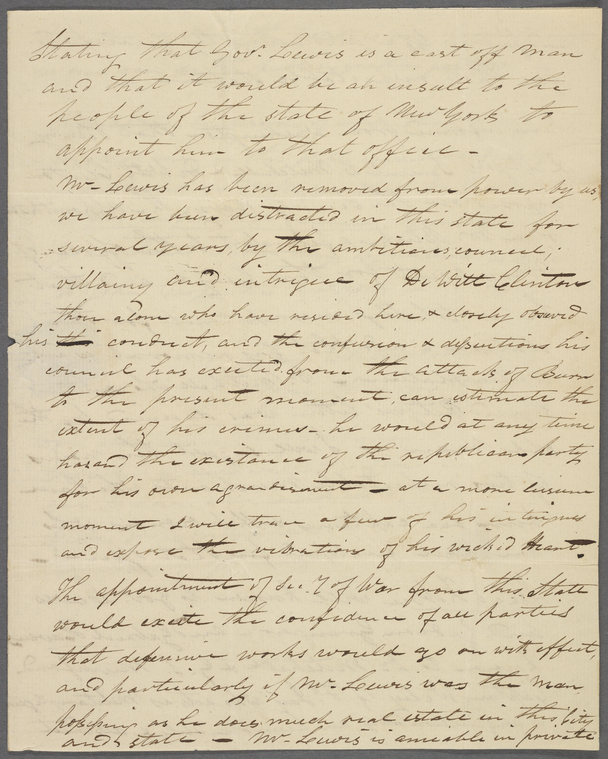 Stating that Govr. Lewis is a cast off man
and that it would be an insult to the
people of the state of New York to
appoint him to that office -
Mr. Lewis has been removed from power by us,
we have been distracted in this state for
several years, by the ambitious, council,
villainy and intrigue of De Witt Clinton
those alone who have resided here, & closely observed
his conduct, and the confusion & dissentions his
council has excited from the attack of Burr
to the present moment, can estimate the
extent of his crimes - he would at any time
hazard the existance of the republican party
for his own agrandisement - at a more leisure
moment I will trace a few of his intrigues
and expose the vibrations of his wicked Heart.
The appointment of Sec.y of War from this State
would excite the confidence of all parties
that defensive works would go on with effect,
and particularly if Mr. Lewis was the man
possessing as he does much real estate in this City
and state - Mr. Lewis is amiable in private